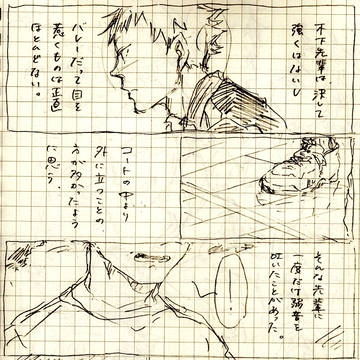 木下先輩は 決して
強くはないし
バレーだって目を
惹くものは正直
ほとんどない。
コートの中より
外に立つことの
方が多かったよう
に思う。
そんな先輩に
一度だけ弱音を
吐いたことがあった。